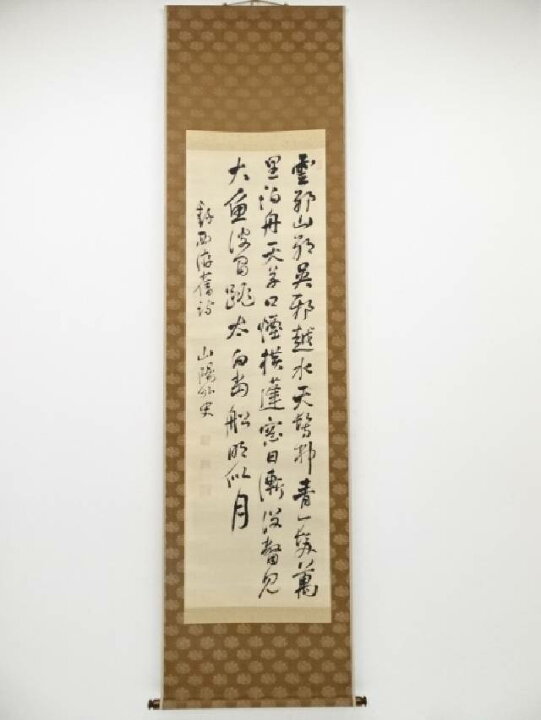 雲耶山耶呉耶越水天髣髴青一髪萬
里泊舟天草口煙横蓬窓日漸沒瞥見
大魚波間跳太白當船明似月
西遊舊詩 山陽外史